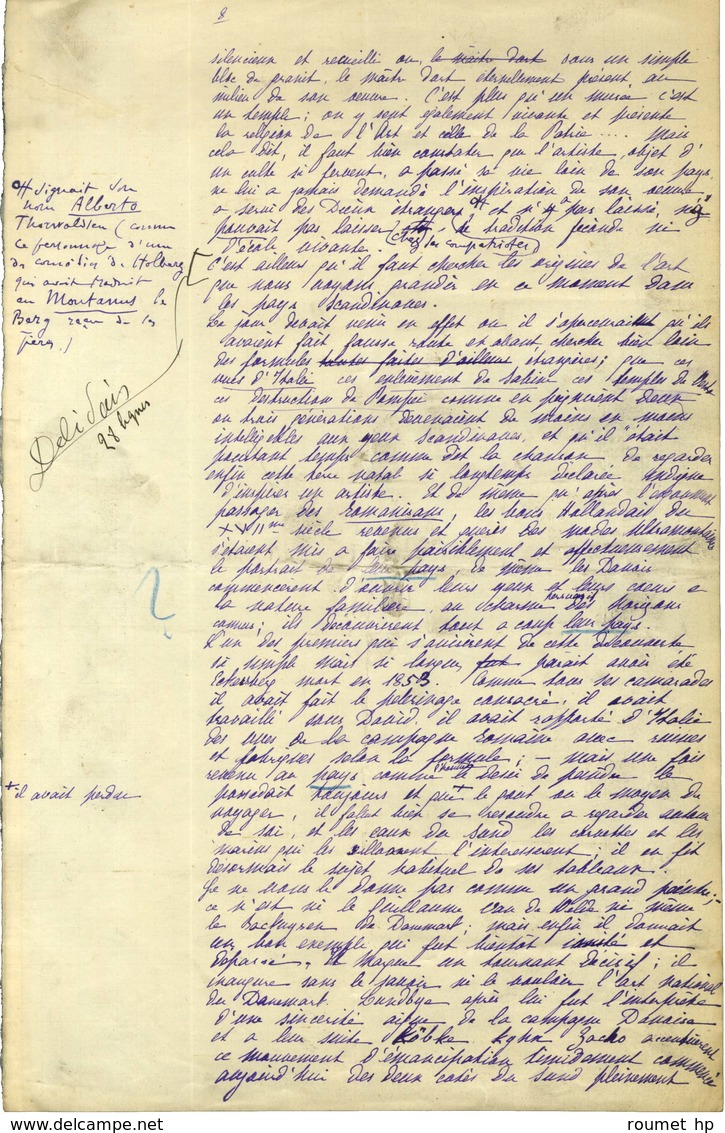 8
silencieux et recueilli où, le maître dort sous un simple
bloc de granit, le maître dort éternellement présent au
milieu de son oeuvre. C'est plus qu'un musée c'est
un temple ; on y sent également vivante et présente
la religion de l'Art et celle de la Patrie .... Mais
cela dit, il faut bien constater que l'artiste, objet d'
un culte si fervent, a passé sa vie loin de son pays,
ne lui a jamais demandé l'inspiration de son oeuvre
a servi des Dieux étrangers et n'y a pas laissé, n'y
pouvait pas laisser chez ses compatriotes de tradition féconde ni
d'école vivante.
C'est ailleurs qu'il faut chercher les origines de l'art
que nous voyons grandir en ce moment dans
les pays scandinaves.
Le jour devait venir en effet où il s'apercevraient qu'ils
avaient fait fausse route et allant chercher bien loin
des formules toutes faites d'ailleurs étrangères ; que ces
vues d'Italie ces enlèvement de Sabine ces temples de
ces destruction de Pompei comme en peignirent deux
ou trois générations devenaient de moins en moins
intelligibles aux yeux scandinaves, et qu'il était
pourtant temps comme dit la chanson de regarder
enfin cette terre natal si longtemps déclarée indigne
d'inspirer un artiste. Et de même qu'après l'engouement
passager des Romanisans, les bons Hollandais du
XVIIme siècle revenus et guéris des modes ultramontaines
s'étaient mis à faire paisiblement et affectueusement
le portrait de leur pays, de même les Danois
commencèrent d'ouvrir leurs yeux et leurs coeurs à
la nature familière, au charme des horizons
connus ; ils découvrirent tout à coup leur pays.
L'un des premiers qui s'avisèrent de cette découverte
si simple mais si longue parait avoir été
Eckersberg mort en 1853. Comme tous ses camarades
il avait fait le pélerinage consacré, il avait
travaillé sous David, il avait rapporté d'Italie
des vues de la campagne romaine avec ruines
et selon la formule ; - mais une fois
revenu au pays, comme le désir de peindre le
possédait toujours et que + le goût ou le moyen de
voyager, il fallut bien se résoudre à regarder autour
de soi, et les eaux du Sund les corvettes et les
marins qui les sillonnent l'intéressèrent ; il en fit
désormais le sujet habituel de ses tableaux.
Je ne vous le donne pas comme un grand peintre ; -
ce n'est ni le Guillaume van de Velde ni même
le Backuysen du Danemark ; mais enfin il donnait
un bon exemple qui fut bientôt imité et
dépassé. Il marque un tournant décisif ; il
inaugure sans le savoir ni le vouloir l'art national
du Danemark. Lundbye après lui fut l'interprète
d'une sincérité aigue de la campagne Danoise
et à leur suite Köbke Kyhn Zacho accentuèrent
ce mouvement d'émancipation timidement commencé
aujourd'hui des deux cotés du Sund pleinement
Signait son
nom Alberto
Thorwaldsen (comme
ce personnage d'une
des comédies de Holberg
qui avait traduit
en Montanus le
Berg reçu de ses
pères.)
Deli Sais
28 lignes
?
+ il avait perdu